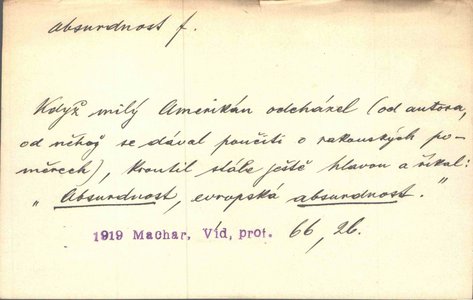 absurdnost f.
Když milý Amerikán odcházel (od autora,
od něhož se dával poučiti o rakouských po-
měrech), kroutil stále ještě hlavou a říkal:
„Absurdnost, evropská absurdnost."
1919 Machar, Víd, prot. 66, 26.